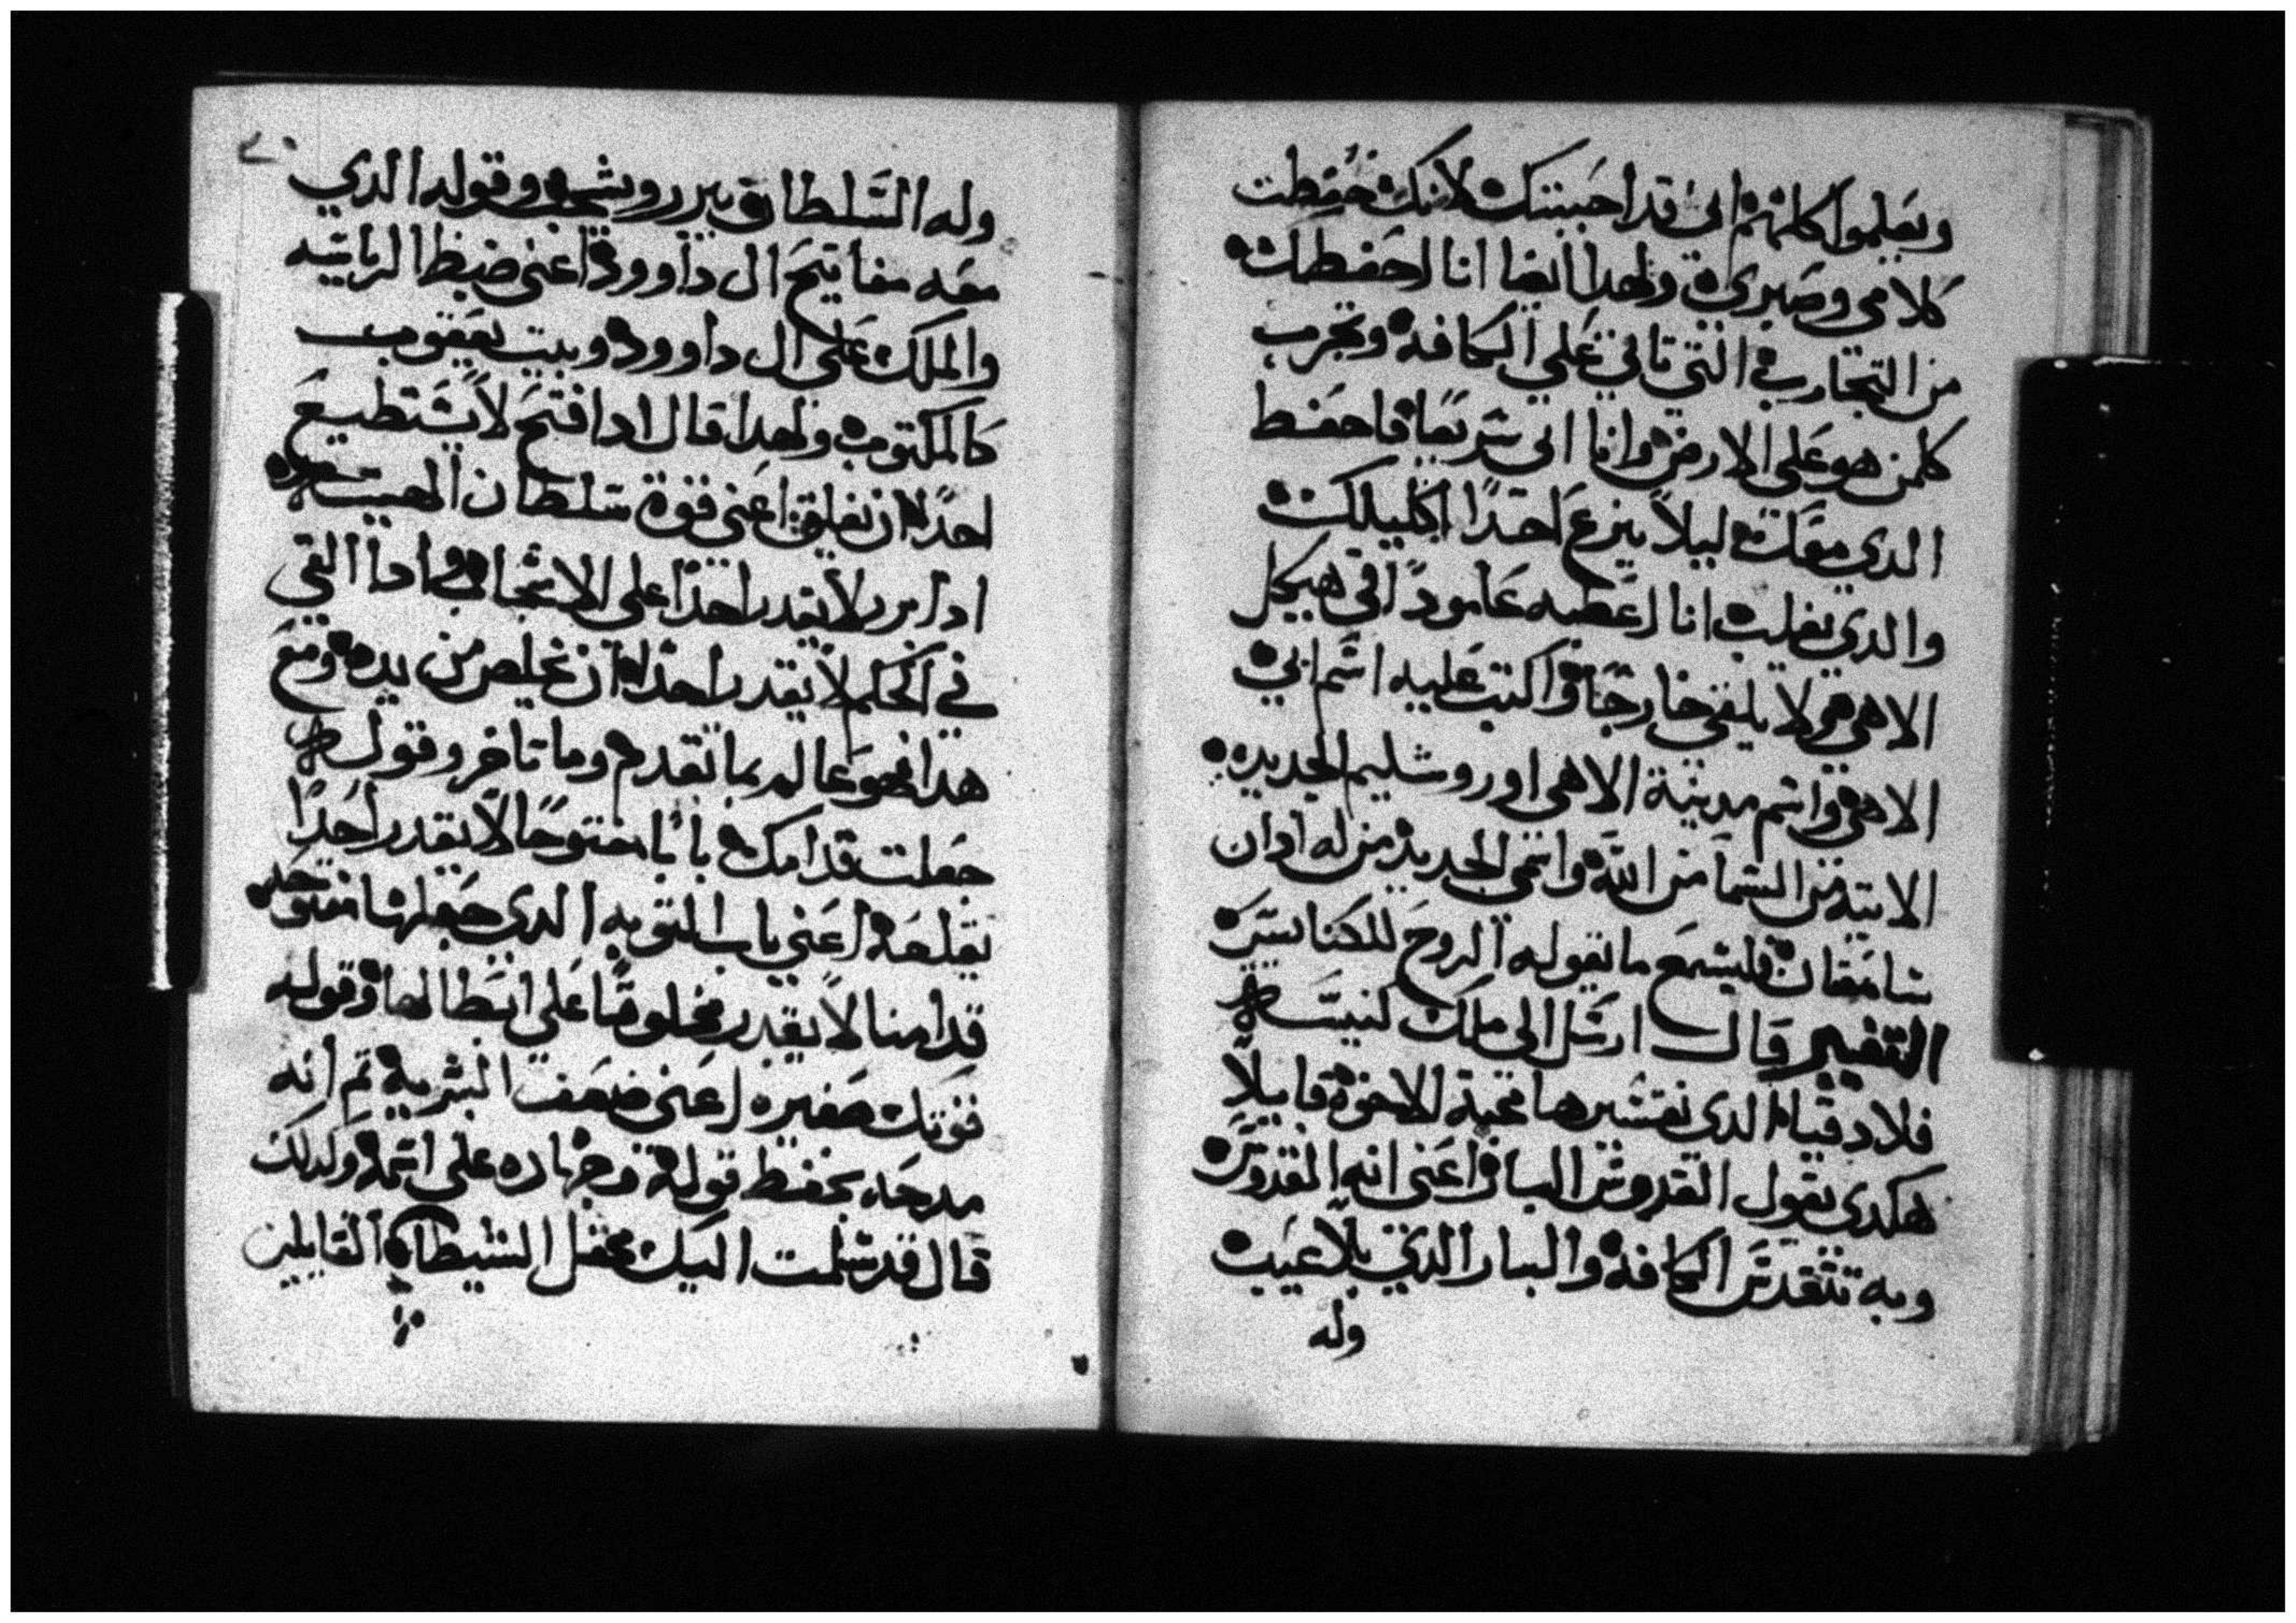 ويعلموا كلهم اني قد احببتك لانك حفظت
كلامي وصبري ولهدا ايضا انا احفظك
من التجارب التي تاتي علي الكافه وتجرب
كلمن هو علي الارض وانا اتي سريعا فاحفظ
الدي معك ليلا ينزع احدا اكليلك
والدي يغلب انا اعطيه عامودا في هيكل
الاهي ولا يلقي خارجا واكتب عليه اسم ابي
الاهي واسم مدينة الاهي اوروشليم الجديده
الاتيه من السما من الله واسمي الجديد من له ادان
سامعتان فليسمع ما يقوله الروح للكنايس
التفسير قال ارسل الي ملاك كنيسه
فلادقيا الدي تفسيرها محبة الاخوة قايلا
هكدي يقول القدوس البار اعني انه القدوس
وبه تتقدس الكافه والبار الدي بلا عيب
وله
وله السلطان يبرر ويشجب وقوله الدي
معه مفاتيح ال داوود اعني ضبظ الرياسه
والملك علي ال داوود وبيت يعقوب
كالمكتوب ولهدا قال ادا فتح لا يستطيع
احدا ان يغلق اعني قوة سلطان
ادا برر لا يقدر احدا علي الاشجاب وادا القي
في الحكم لا يقدر احدا ان يخلص من يده ومع
هدا فهو عالم بما تقدم وما تاخر وقوله
جعلت قدامك بابا مفتوحا لا يقدر احدا
يغلقه اعني باب التوبه الدي جعلها مفتوحه
قدامنا لا يقدر مخلوقا علي ابطالها وقوله
قوتك صغيره اعني ضعف البشرية تم انه
مدحه بحفظ قوله وجهاده علي اسمه ولدلك
قال قد سلمت اليك محفل الشيطان القايلين